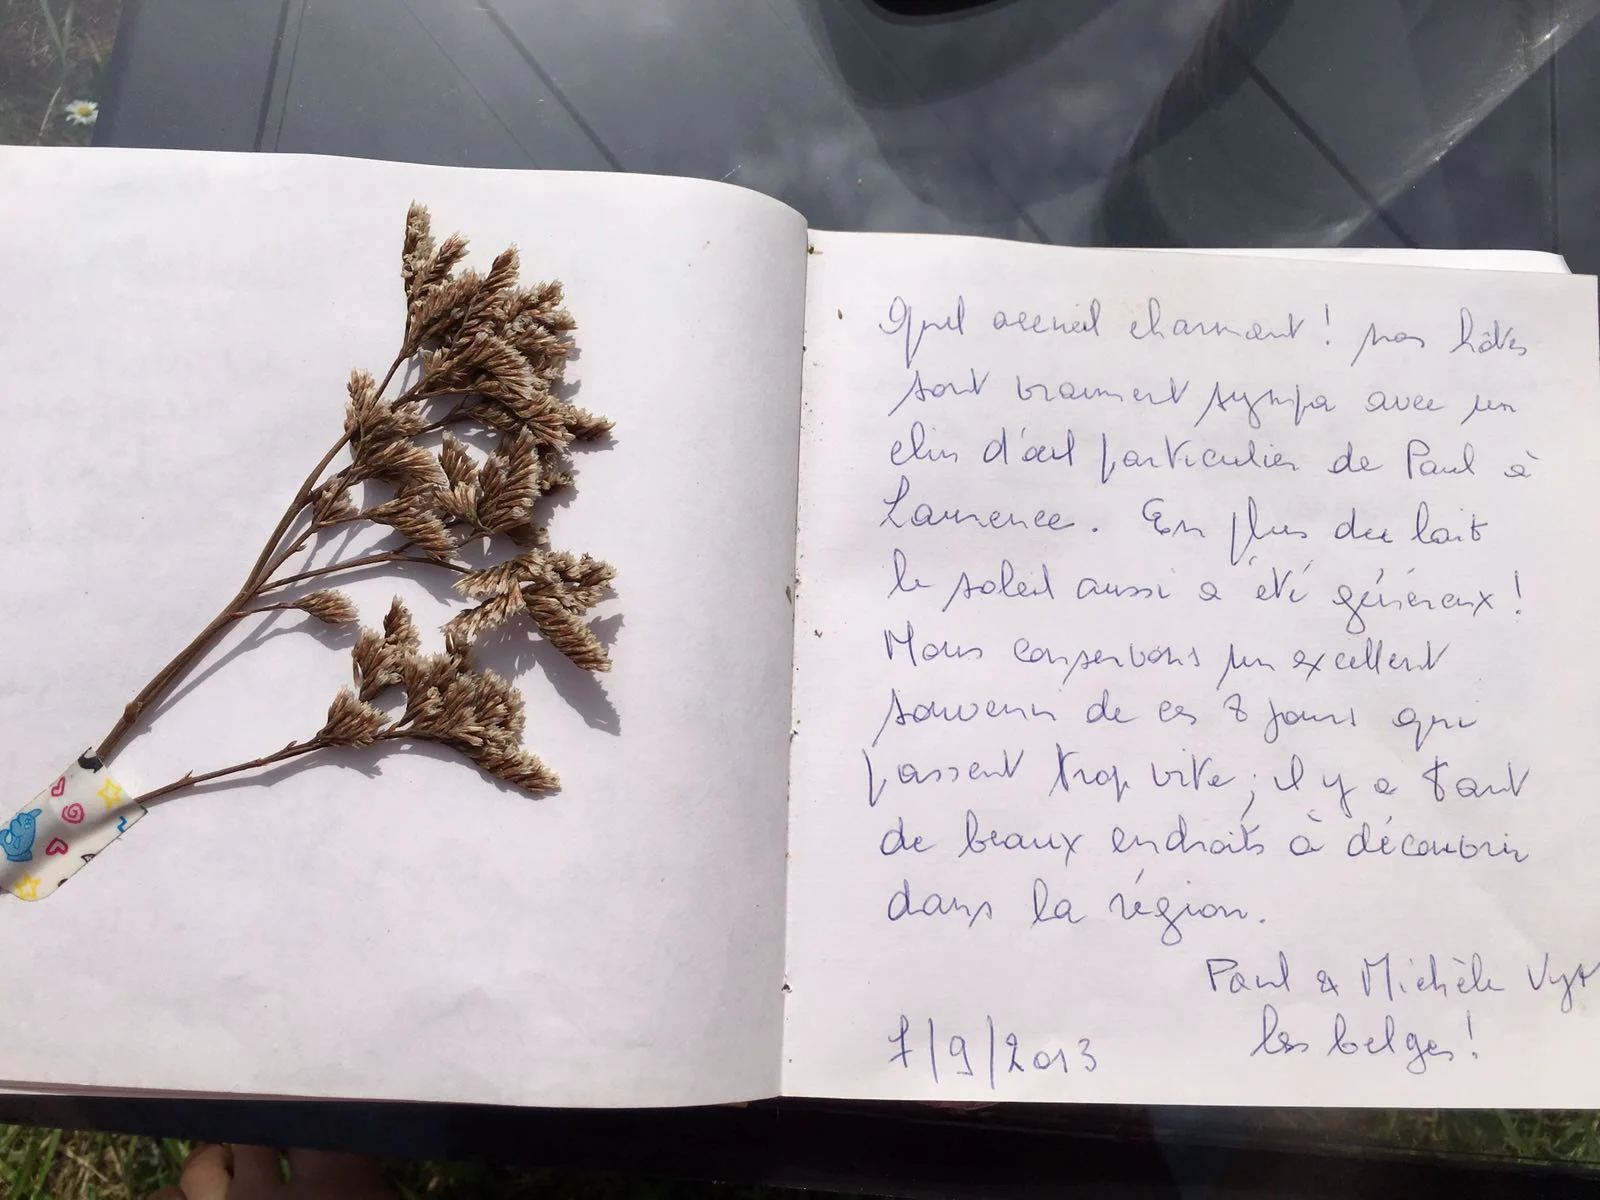 Quel accueil charmant ! nos hôtes
sont vraiment sympa avec un
clin d'œil particulier de Paul à
Laurence. En plus du lait
le soleil aussi a été généreux !
Nous conservons un excellent
souvenir de ces 8 jours qui
passent trop vite ; il y a tant
de beaux endroits à découvrir
dans la région.
Paul & Michèle
les belges !
7/9/2013